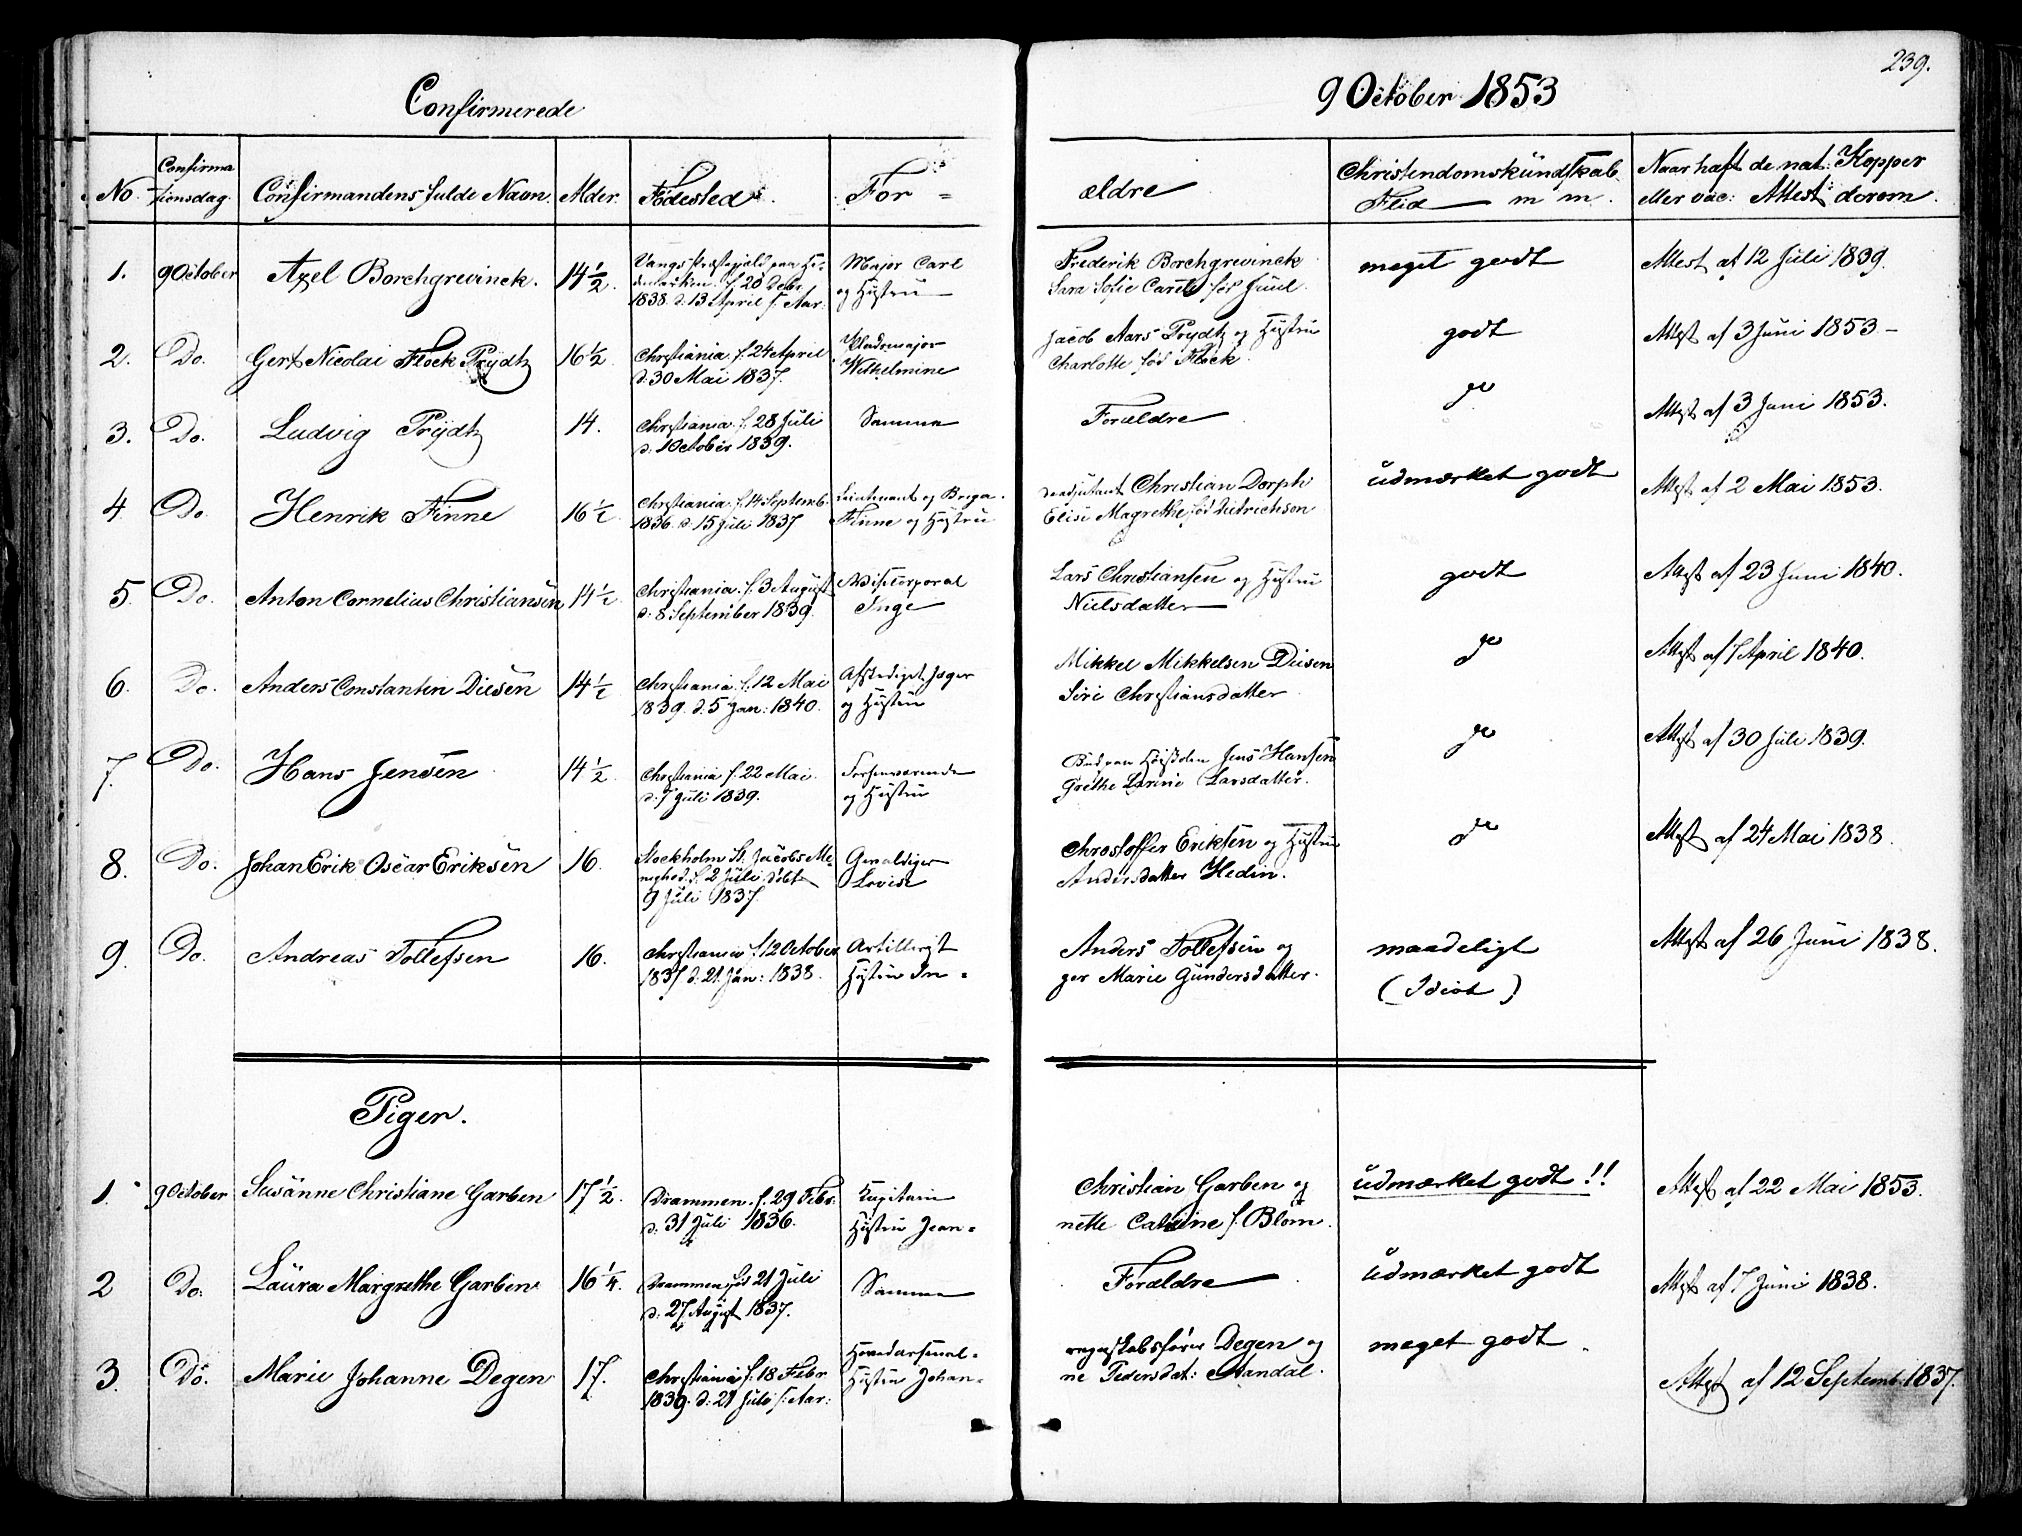 239.
Confirmerede
9 October 1853
No
Confirma
tionsdag.
Confirmandens fulde Navn.
Alder.
Fødested.
For =
ældre
Christendomskundskab
Flid — m m.
Naar haft de nat: Kopper
eller vac: Attest derom.
1. 9 October Axel Borchgrevinck. 14 1/2.
Vangs Præstegjeld paa He-
demarken. f. 20 Debr.
1838. d. 13 April f. Aar.
Major Carl
og Hustru
Frederik Borchgrevinck
Sara Sofie født Juul.
meget godt
Attest af 12 Juli 1839.
2. Do. Gert Nicolai Flock Prydtz 16 1/2.
Christiania. f. 24 April
d. 30 Mai 1837.
Pladsmajor
Wilhelmine
Jacob Aars Prydtz og Hustru
Charlotte født Flock.
godt
Attest af 3 Juni 1853 –
3. Do. Ludvig Prydtz 14.
Christiania. f. 28 Juli
d. 1 October 1839.
Samme
Forældre
do
Attest af 3 Juni 1853.
4. Do. Henrik Finne 16 1/2.
Christiania. f. 14 Septemb:
1836. d. 15 Juli 1837
Leutnant og Briga-
Finne og Hustru
deadjutant Christian Dorph
Elise Magrethe fød Didrichson
udmærket godt
Attest af 2 Mai 1853.
5. Do. Anton Cornelius Christiansen 14 1/2
Christiania. f. 3 August
d. 8 September 1839.
Inge
Lars Christiansen og Hustru
Nielsdatter
godt
Attest af 23 Juni 1840.
6. Do. Anders Constantin Diesen 14 1/2
Christiania. f. 12 Mai
1839. d. 5 Jan: 1840.
Afskediget Jæger
og Hustru
Mikkel Mikkelsen Diesen
Siri Christiansdatter
do
Attest af 7 April 1840.
7. Do. Hans Jensen 14 1/2.
Christiania f. 22 Mai.
d. 7 Juli 1839.
Forhenværende
og Hustru
Jens Hansen
Grethe Larine Larsdatter.
do
Attest af 30 Juli 1839.
8. Do. Johan Erik Oscar Eriksen 16.
Stockholm St. Jacobs Me-
nighed f. 2 Juli. døbt
9 Juli 1837.
Gevaldiger
Lovise
Christoffer Eriksen og Hustru
Andersdatter Hedin.
do
Attest af 24 Mai 1838.
9. Do. Andreas Tollefsen 16.
Christiania f. 12 October
1837 d. 21 Jan: 1838.
Artillerist
Hustru In=
Anders Tollefsen og
ger Marie Gundersdatter.
maadeligt
(Idiot)
Attest af 26 Juni 1838.
Piger.
1. 9 October Susanne Christiane Garben 17 1/2.
Drammen. f. 29 Febr.
d. 31 Juli 1836.
Kapitain
Hustru Jean=
Christian Garben og
nette Catrine f. Blom.
udmærket godt!!
Attest af 22 Mai 1853.
2 Do. Laura Margrethe Garben 16 1/4.
Drammen fød 21 Juli
d. 27 August 1837.
Samme
Forældre
udmærket godt
Attest af 7 Juni 1838.
3. Do. Marie Johanne Degen 17.
Christiania f. 18 Febr
1839. d. 21 Juli f. Aar:
Hovedarsenal=
Hustru Johan=
regnskabsfører Degen og
ne Pedersdat: Aandal.
meget godt
Attest af 12 Septemb. 1837.